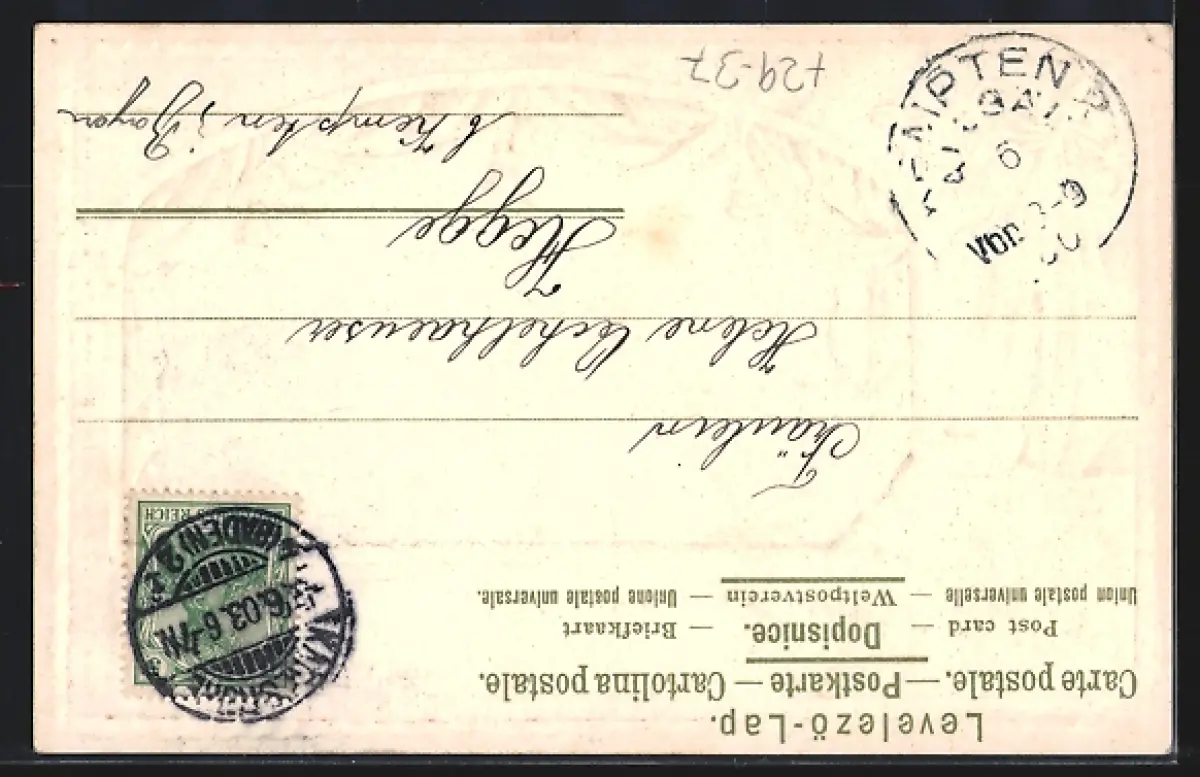 Levelező-Lap.
Carte postale. — Postkarte — Cartolina postale.
Post card — Dopisnice. — Briefkaart
Union postale universelle — Weltpostverein — Unione postale universale.
REICH
KARLSRUHE
6.03. 6-7N.
(BADEN) 2
Fräulein
Helene
Hegge
b Kempten, Bayern
KEMPTEN
6
VOR 8-9
+29-37